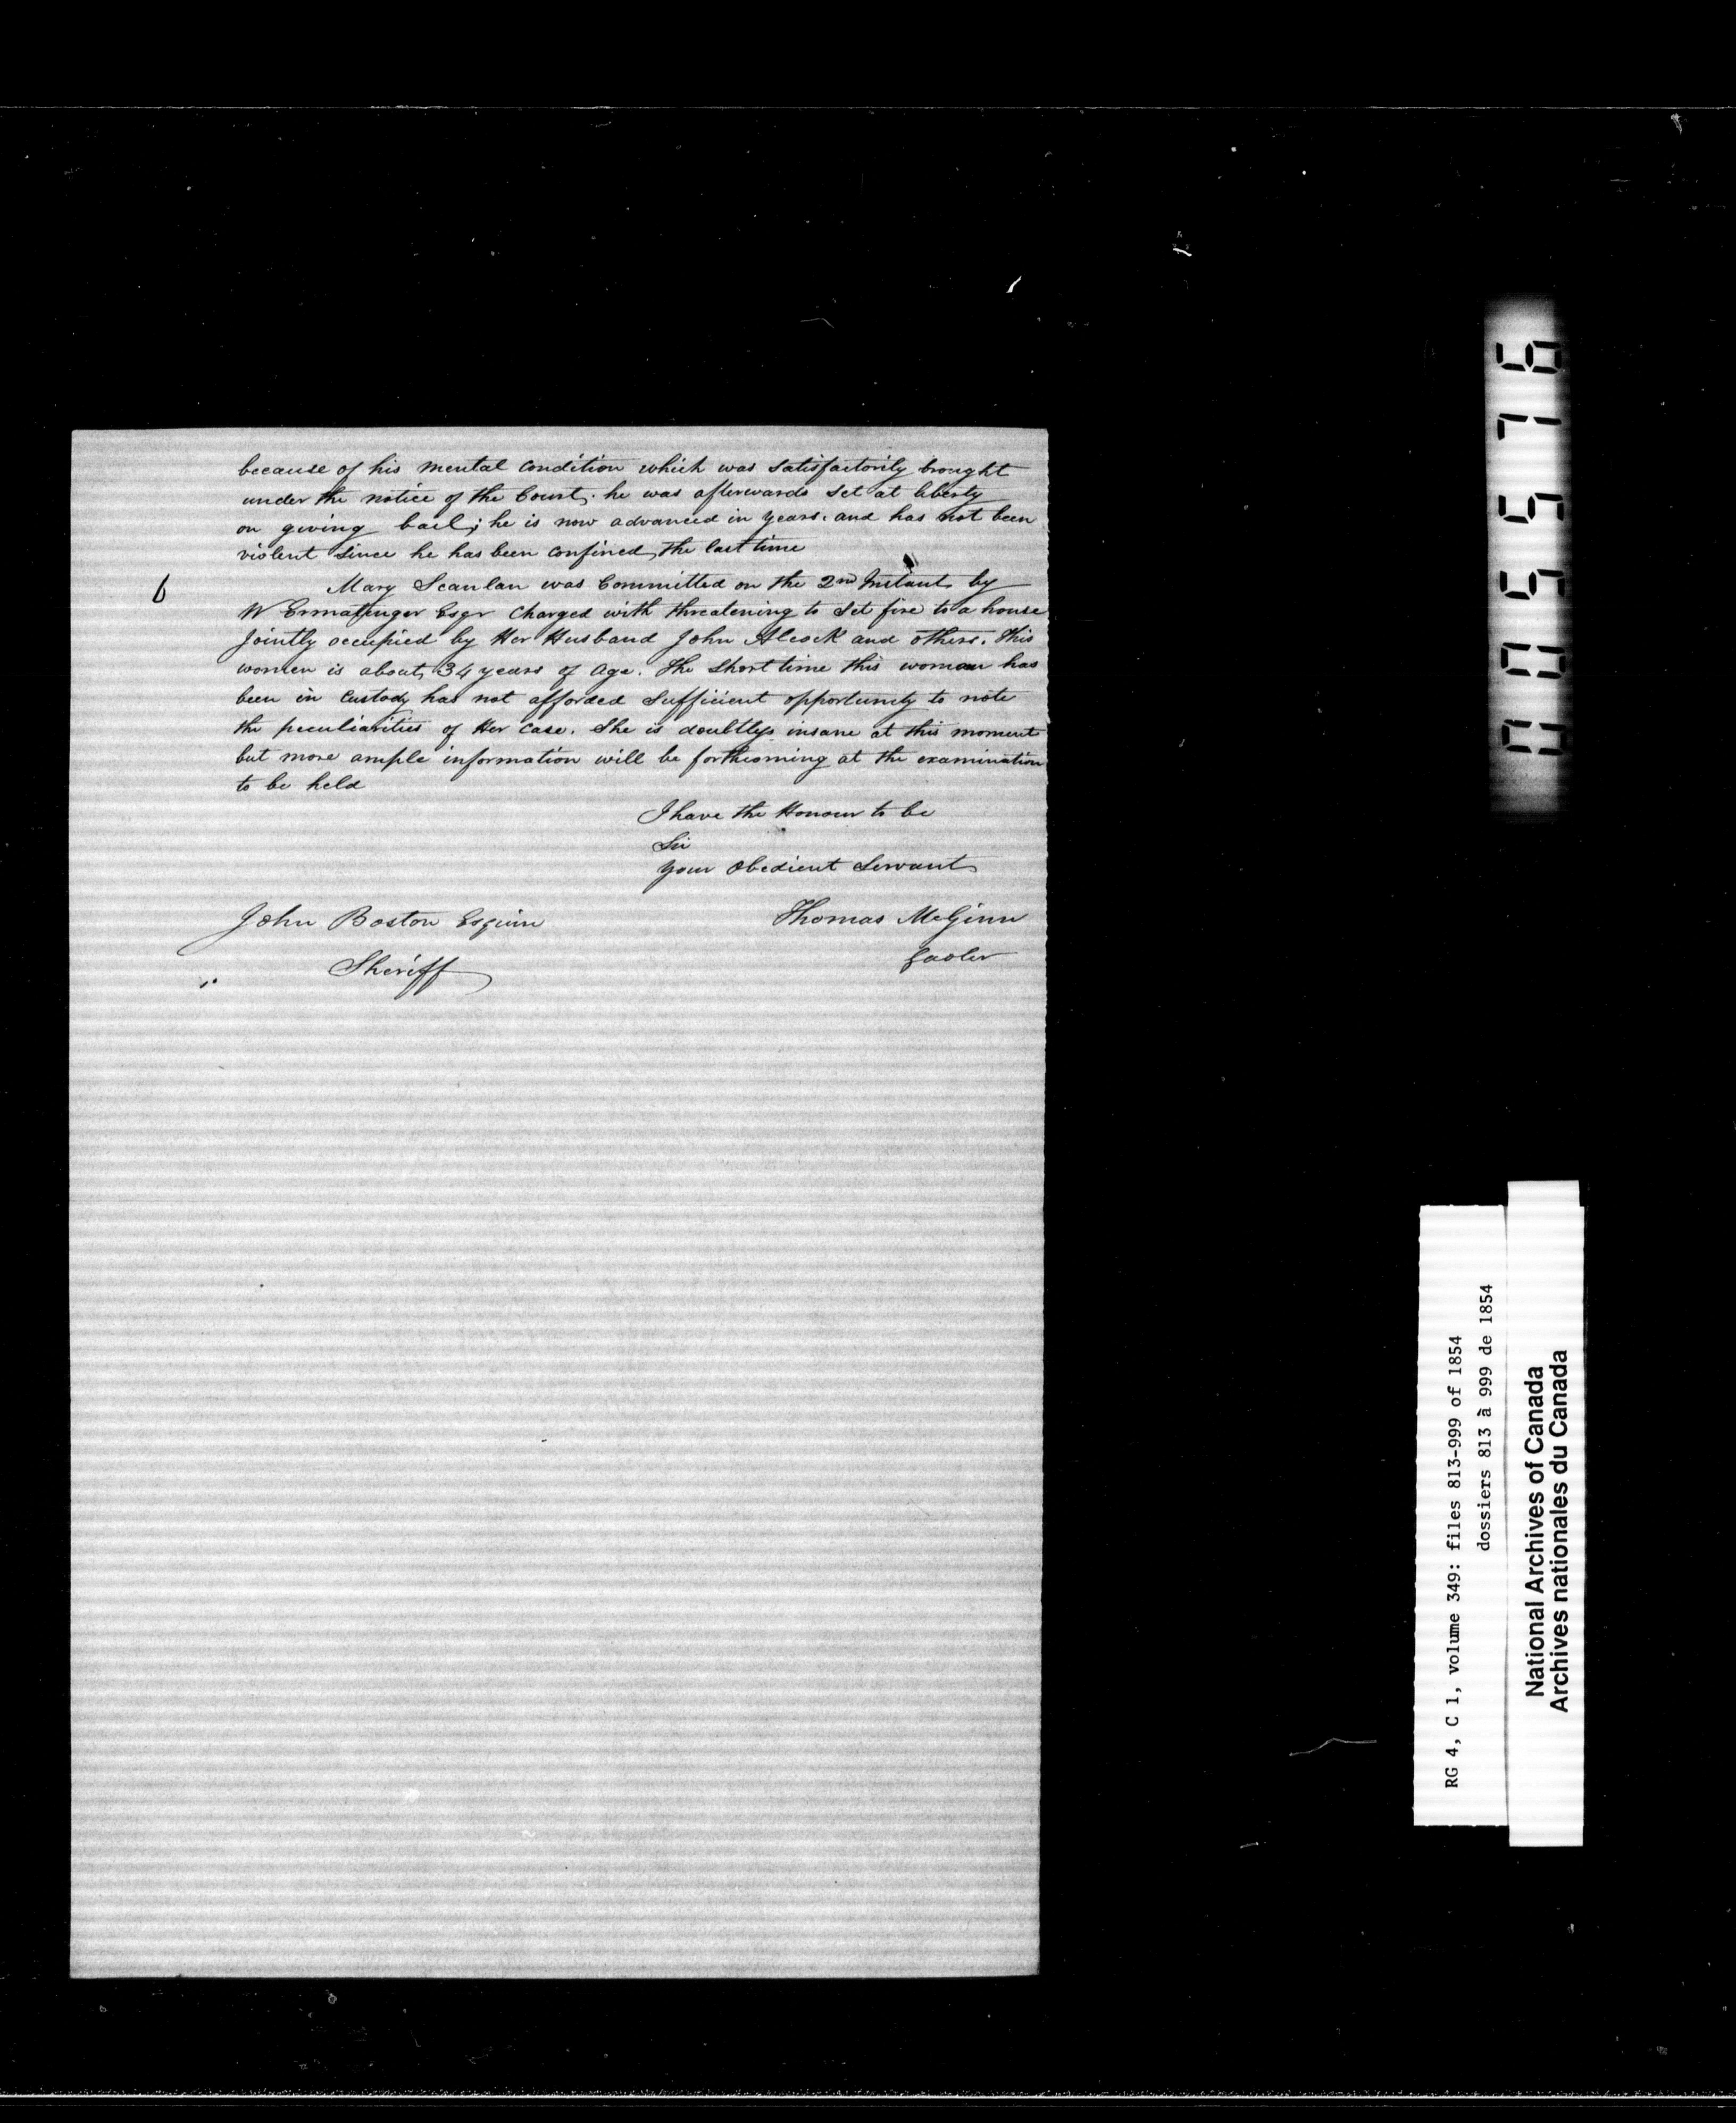 because of his mental condition which was satisfactorily brought
under the notice of the Court; he was afterwards set at liberty
on giving bail; he is now advanced in years, and has not been
violent since he has been confined, the last time
6 Mary Scanlan was Committed on the 2nd Instant by
W Ermatinger Esqr Charged with threatening to Set fire to a house
Jointly occupied by Her Husband John Alcock and others. This
women is about 34 years of Age. The short time this woman has
been in Custody has not afforded Sufficient opportunity to note
the peculiarities of Her Case. She is doubtless insane at this moment
but more ample information will be forthcoming at the examination
to be held
I have the Honour to be
Sir
your Obedient Servant
Thomas McGinn
Gaoler
John Boston Esquire
Sheriff
005576
RG 4, C 1, volume 349: files 813-999 of 1854
dossiers 813 à 999 de 1854
National Archives of Canada
Archives nationales du Canada